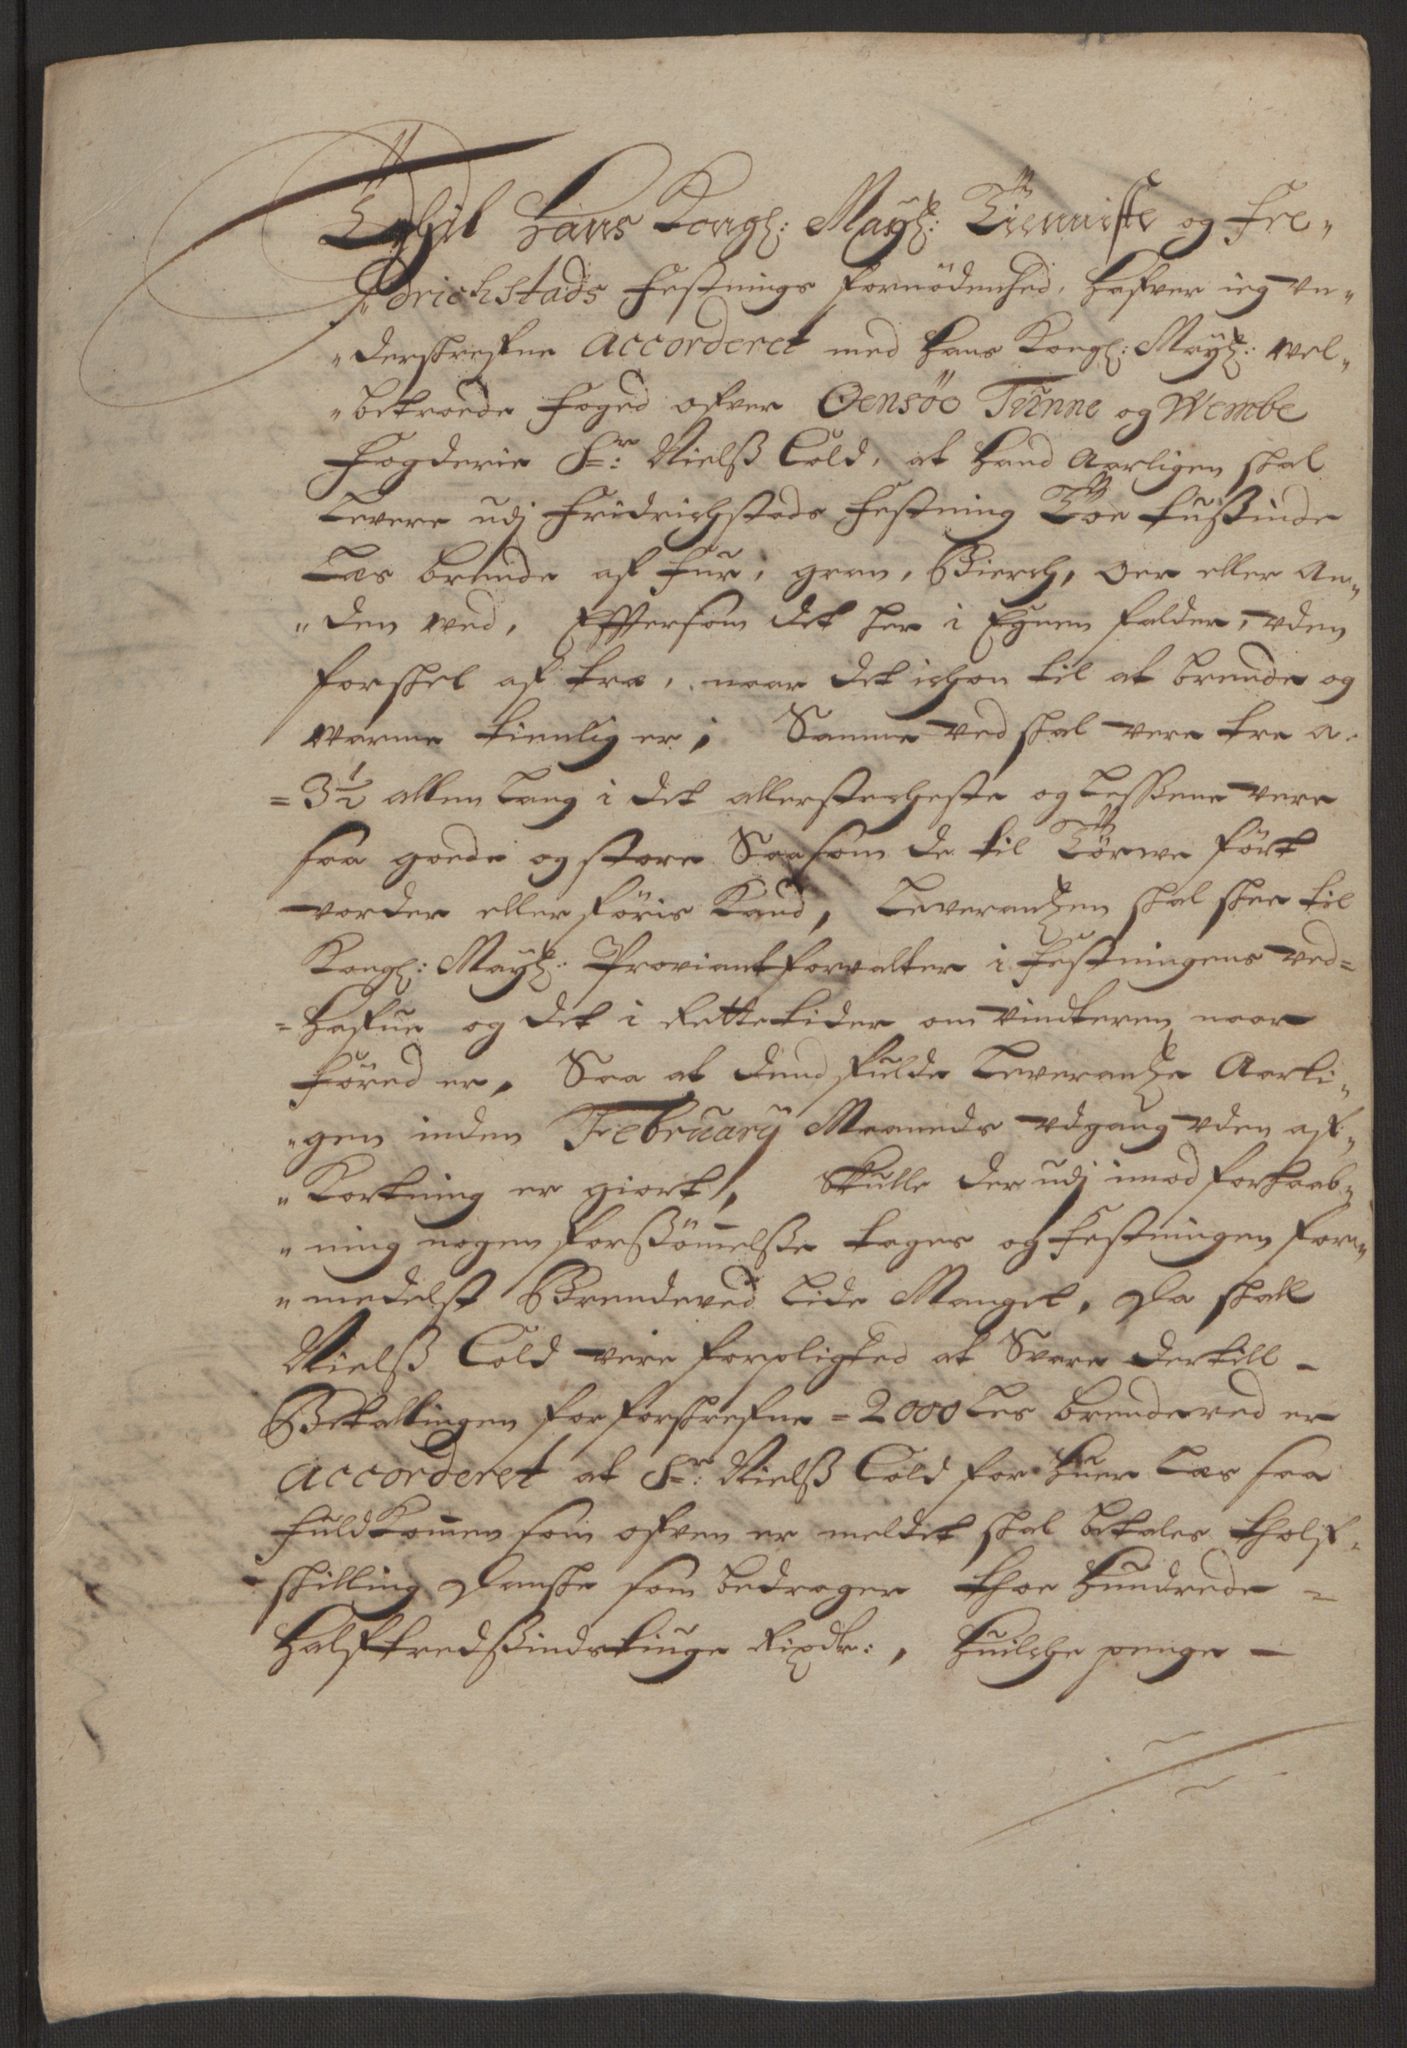 Till Hans Kongl: Mayt: Tienniste og Fre„
„drichstads Festnings fornödenhed, hafver ieg un„
„derskrefne Accorderet med Hans Kongl: Mayt: vel„
„betroede foged ofver Oensöe Tunne og Wembe
Fogderie Sr: Nielß Cold, at hand Aarligen skal
Levere udj Fridrichstads Festning Toe tußinde
Læs brende af fur, gran, Bierch, Oer eller An„
„den ved, Efftersom det her i Egnen falder, uden
forskel af træ, naar det ichon til at brende og
varme tienlig er, Samme ved skal vere tre a
=3½ allen Lang i det allerstercheste og Leßene vere
saa goede og store Saasom de til Törwe fört
vorder eller föris kand, Leverantzen skal skee til
Kongl: Mayt: Proviantforvalter i Festningens ved=
=hafue og det i rette tider om vinteren naar
föred er, Saa at dend fulde Leverantze Aarli„
„gen inden February Maaneds udgang uden af„
„Kortning er giort, Skulle der udj imod forhaab„
„ning nogen forßömelße tages og Festningen for„
„medelst Brendeved Lide Mangel, Da skall
Nielß Cold vere forpligted at Svare dertill –
Betallingen for forskrefne =2000 Les brendeved er
Accorderet at Sr: Nielß Cold for huer Læs saa
fuldkomen som ofven er meldet skal betales tholf„
skilling Danske som bedrager thoe hundrede =
halftredßindstiuge Rixdr:, huilche penge –